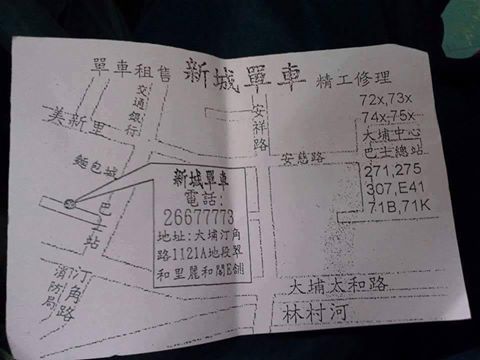 單車租售 新城單車 精工修理
交通銀行
安祥路
美新里
麵包城
巴士站
安慈路
72x,73x
74x,75x
大埔中心
巴士總站
271,275
307,E41
71B,71K
新城單車
電話:
26677773
地址:大埔汀角
路1121A地段翠
和里麗和閣E舖
汀角路
消防局
大埔太和路
林村河